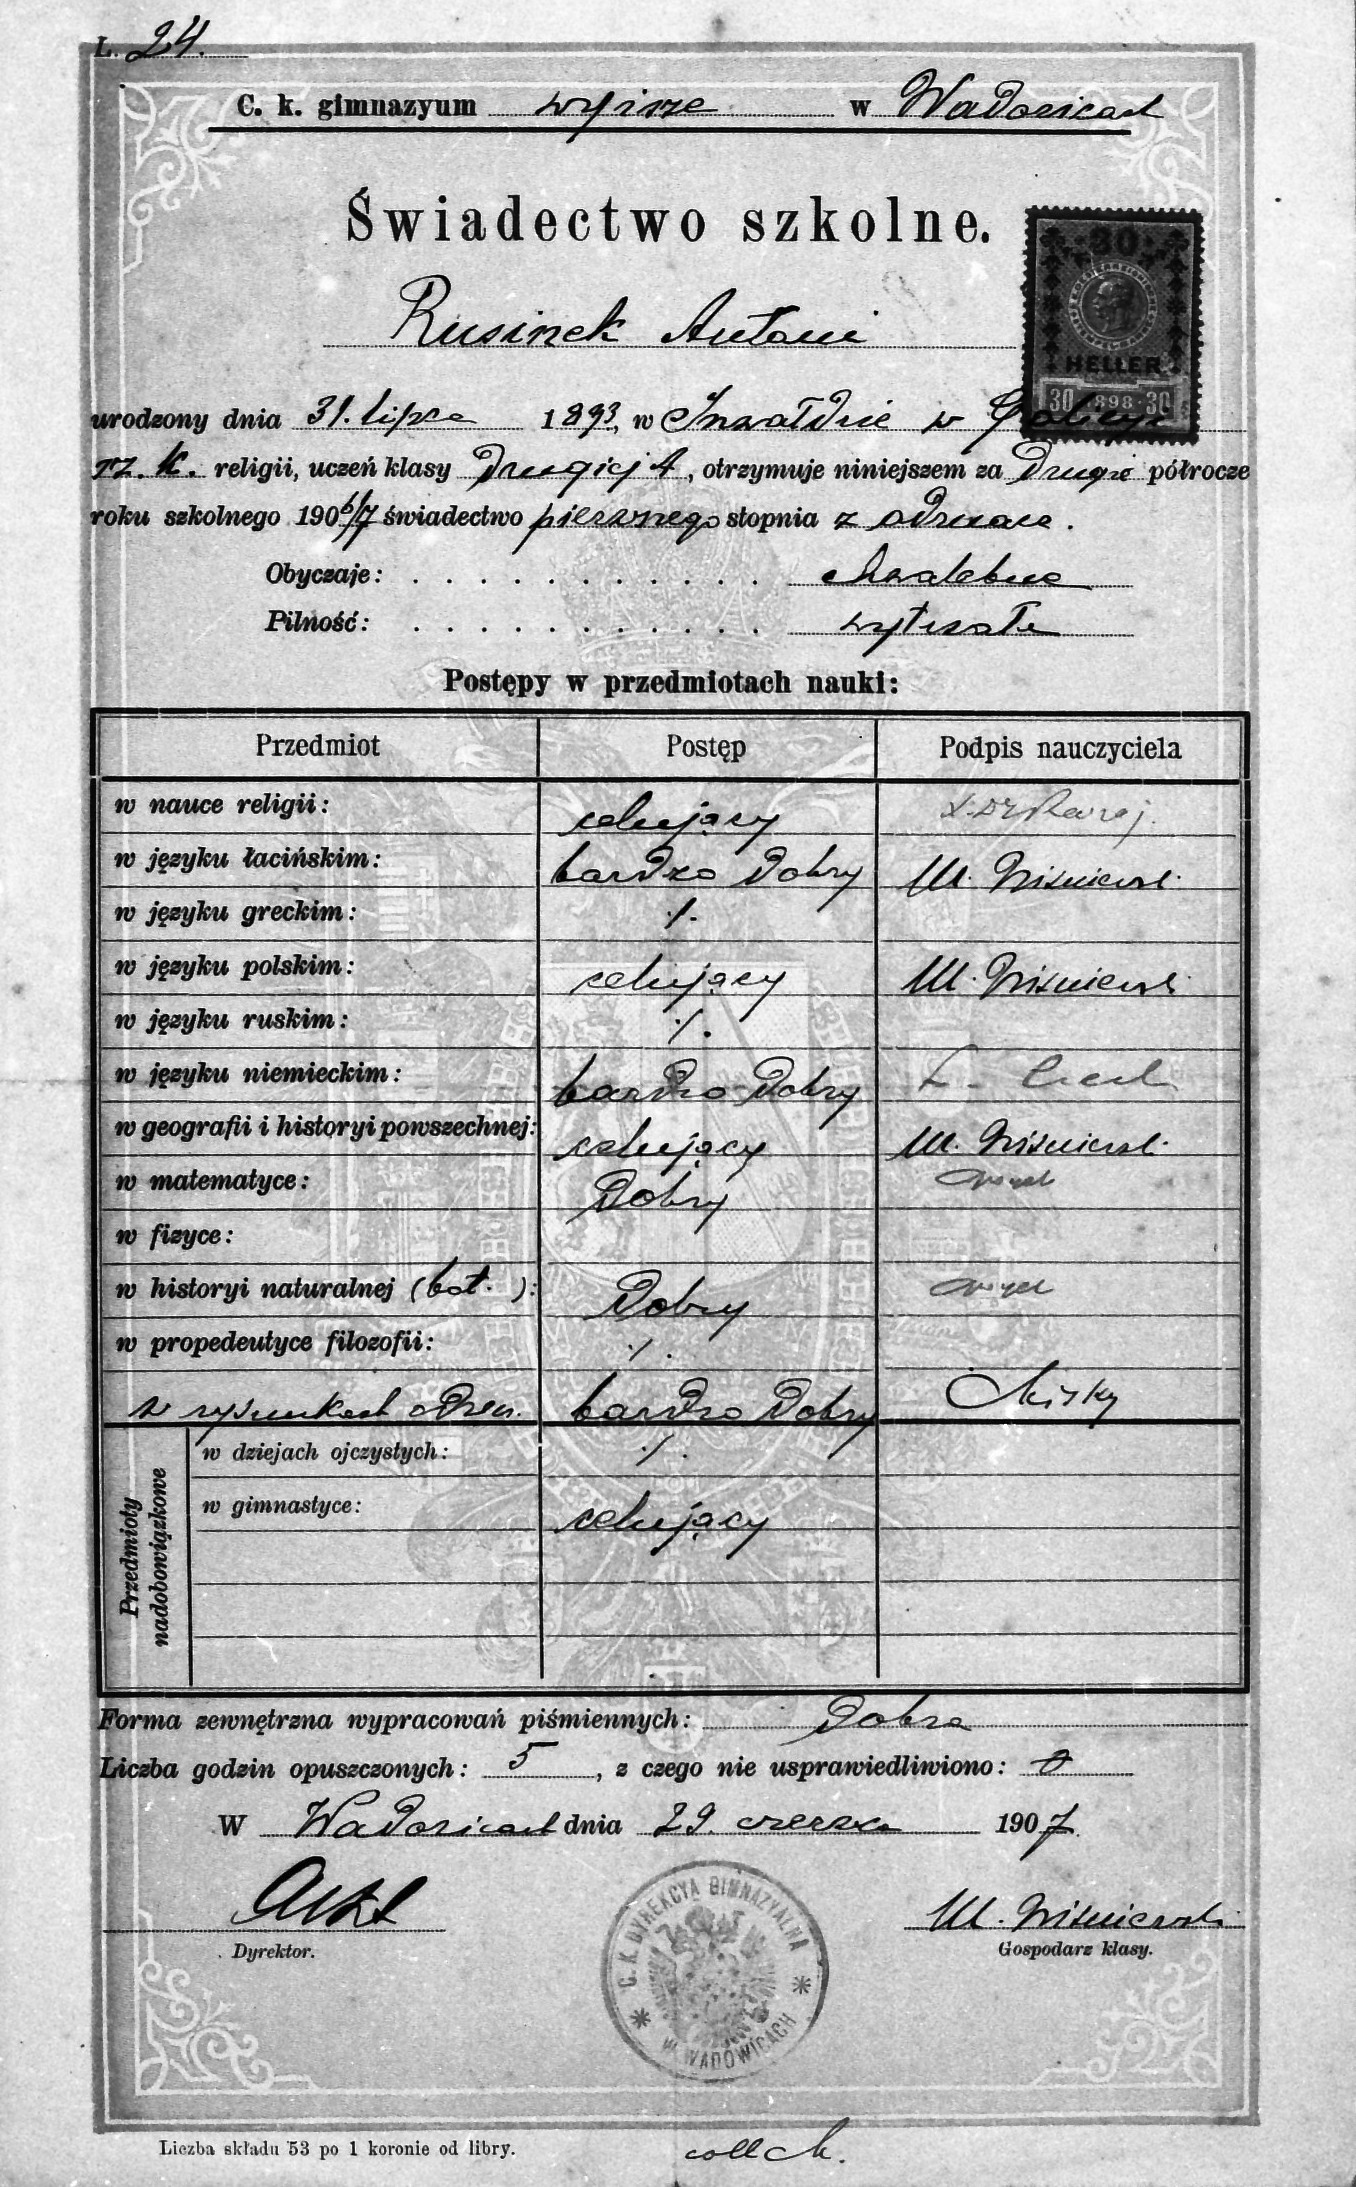 L. 24.
C. k. gimnazyum wyższe w Wadowicach
Świadectwo szkolne.
30
HELLER
30 1898 30
Rusinek Antoni
urodzony dnia 31. lipca 1893, w Inwałdzie w Galicyi
rz. k. religii, uczeń klasy drugiej A, otrzymuje niniejszem za drugie półrocze
roku szkolnego 1906/7 świadectwo pierwszego stopnia z odznacz.
Obyczaje: . . . . . . . . . . . chwalebne
Pilność: . . . . . . . . . . . wytrwała
Postępy w przedmiotach nauki:
Przedmiot Postęp Podpis nauczyciela
w nauce religii: celujący X. Dr
w języku łacińskim: bardzo dobry M. Wiśniewski
w języku greckim: ·/.
w języku polskim: celujący M. Wiśniewski
w języku ruskim: ·/.
w języku niemieckim: bardzo dobry
w geografii i historyi powszechnej: celujący M. Wiśniewski
w matematyce: dobry
w fizyce:
w historyi naturalnej (bot. ): dobry
w propedeutyce filozofii: ·/.
w rysunkach odręcz. bardzo dobry
Przedmioty nadobowiązkowe
w dziejach ojczystych: ·/.
w gimnastyce: celujący
Forma zewnętrzna wypracowań piśmiennych: dobra
Liczba godzin opuszczonych: 5, z czego nie usprawiedliwiono: 0
W Wadowicach dnia 29. czerwca 1907.
M. Wiśniewski
Dyrektor. Gospodarz klasy.
C. K. DYREKCYA GIMNAZYALNA
* W WADOWICACH *
Liczba składu 53 po 1 koronie od libry.